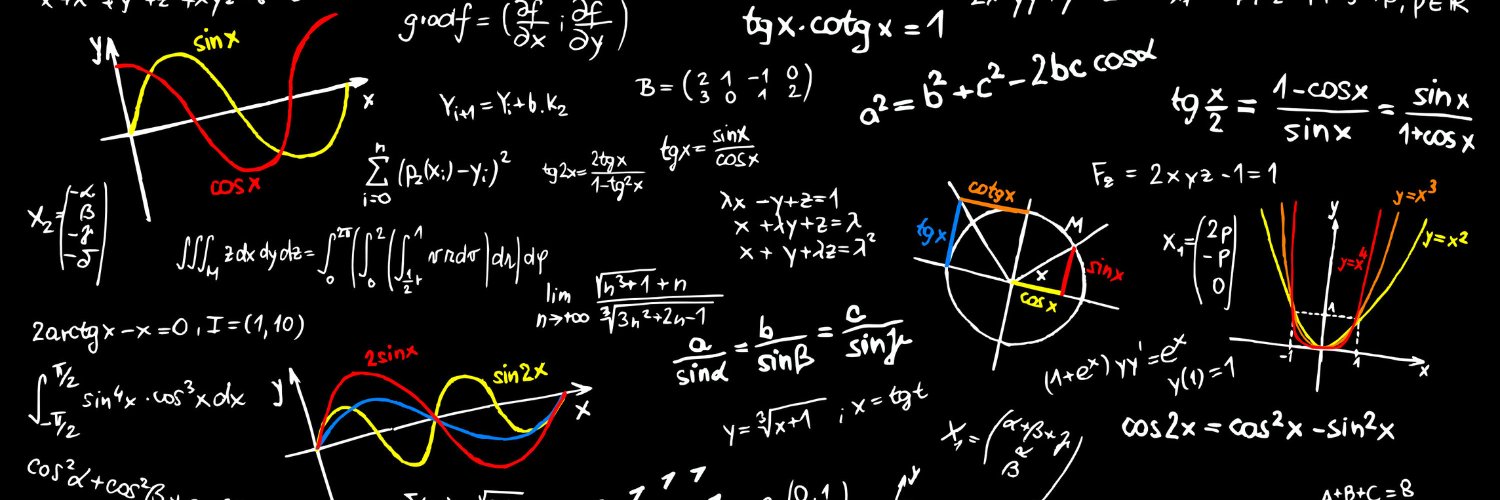 gradf = (∂f/∂x ; ∂f/∂y)
tgx·cotgx = 1
y
sinx
x
cosx
Yᵢ₊₁ = Yᵢ + b.K₂
B = (2 1 -1 0
3 0 1 2)
a² = b² + c² - 2bc cosα
tg x/2 = (1-cosx)/sinx = sinx/(1+cosx)
∑ᵢ₌₀ⁿ (p₂(xᵢ) - yᵢ)²
tg2x = 2tgx/(1-tg²x)
tgx = sinx/cosx
F₂ = 2xyz - 1 = 1
X₂ = (-α
β
-γ
-δ)
λx - y + z = 1
x + λy + z = λ
x + y + λz = λ²
cotgx
tgx
M
x
sinx
cosx
X₁ = (2p
-p
0)
y
y=x³
y=x⁴
y=x²
1
-1
1
x
∭M z dx dy dz =
lim n→+∞ (√(n³+1) + n)/∛(3n²+2n-1)
2arctgx - x = 0, I = (1,10)
a/sinα = b/sinβ = c/sinγ
(1+eˣ) yy' = eˣ
y(1) = 1
∫ from -π/2 to π/2 sin⁴x · cos³x dx
y
2sinx
sin2x
x
y = ∛(x+1) ; x = tgt
X₁ = (α+β+γ
α
β
cos2x = cos²x - sin²x
cos²α + cos²β
(0,1)
A+B+C = 8